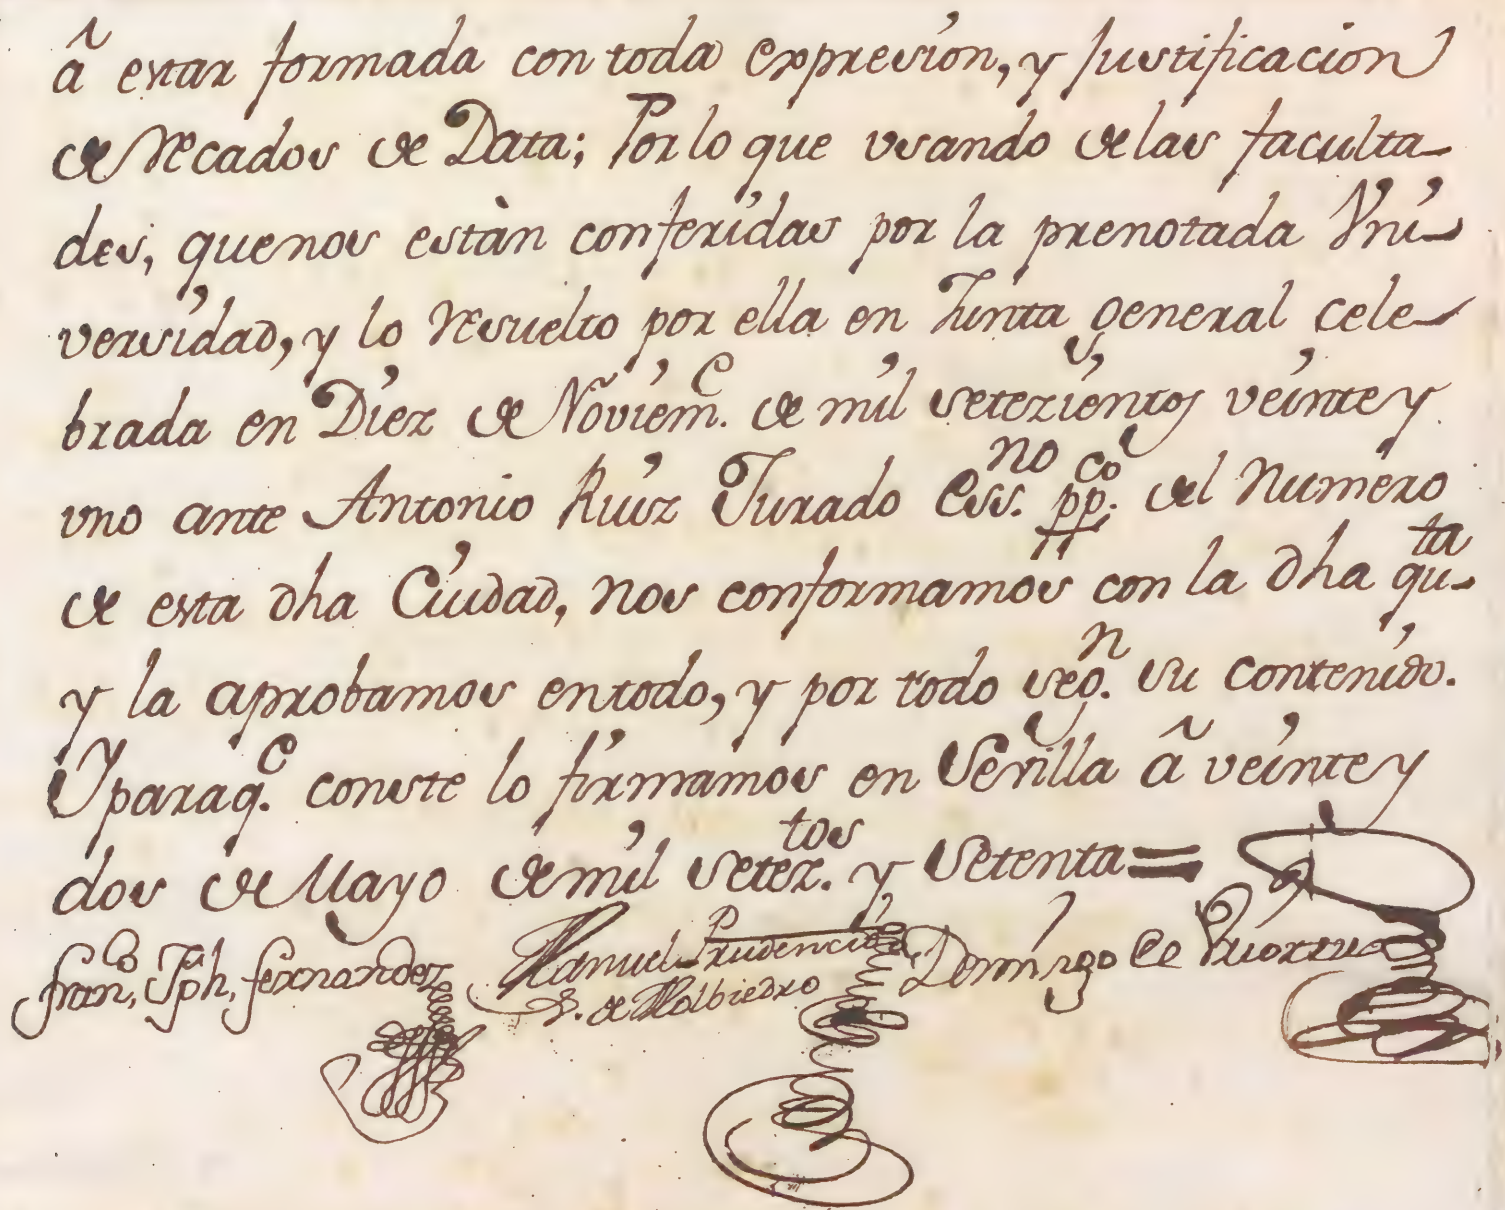 â estar formada con toda expresion, y justificacion
de Recados de Data; Por lo que usando de las faculta-
des, que nos estàn conferidas por la prenotada Vni-
versidad, y lo Resuelto por ella en Junta general cele-
brada en Diez de Noviem.e de mil setezientos veinte y
vno ante Antonio Ruiz Jurado Ess.no pp.co del Numero
de esta dha Ciudad, nos conformamos con la dha qu.ta
y la aprobamos en todo, y por todo seg.n su contenido.
Y para q.e conste lo firmamos en Sevilla â veinte y
dos de Mayo de mil setez.tos y setenta=
Fran.co Jph. Fernandez Manuel Prudencio Domingo de
S. de Molbiedro